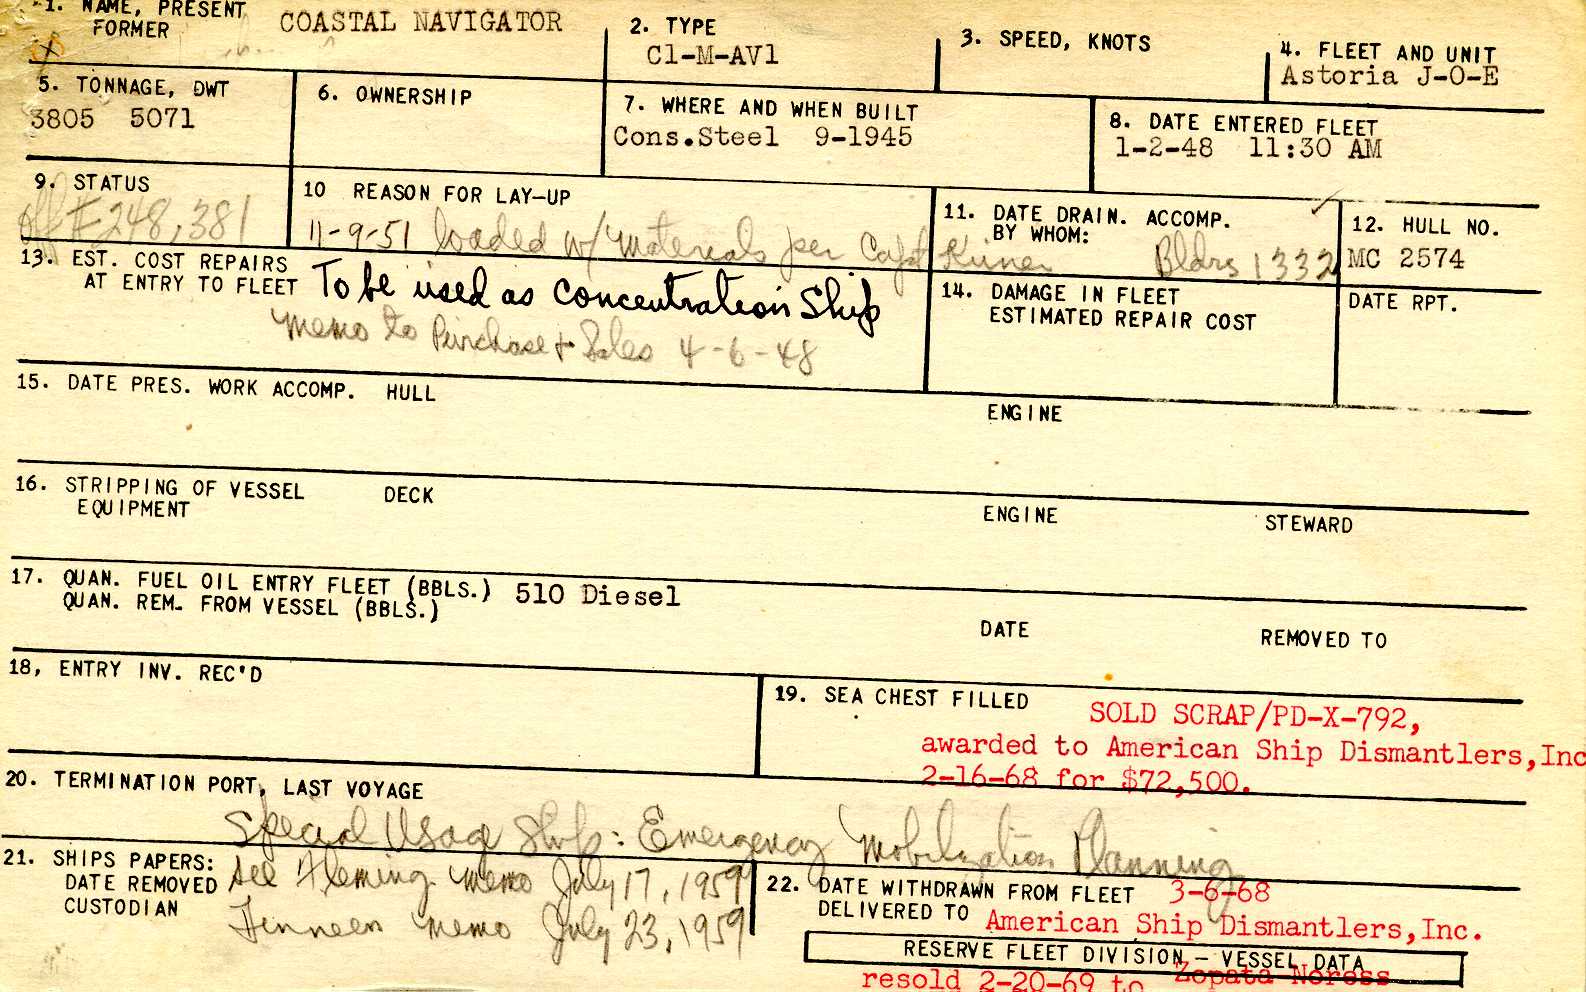 1. NAME, PRESENT COASTAL NAVIGATOR
FORMER
2. TYPE
C1-M-AV1
3. SPEED, KNOTS
4. FLEET AND UNIT
Astoria J-O-E
5. TONNAGE, DWT
3805 5071
6. OWNERSHIP
7. WHERE AND WHEN BUILT
Cons.Steel 9-1945
8. DATE ENTERED FLEET
1-2-48 11:30 AM
9. STATUS
off # 248,381
10 REASON FOR LAY-UP
11-9-51 loaded w/ materials per Capt
11. DATE DRAIN. ACCOMP.
BY WHOM:
Bldrs 1332
12. HULL NO.
MC 2574
13. EST. COST REPAIRS
AT ENTRY TO FLEET To be used as Concentration Ship
Memo to Purchase & Sales 4-6-48
14. DAMAGE IN FLEET
ESTIMATED REPAIR COST
DATE RPT.
15. DATE PRES. WORK ACCOMP. HULL
ENGINE
16. STRIPPING OF VESSEL DECK
EQUIPMENT
ENGINE
STEWARD
17. QUAN. FUEL OIL ENTRY FLEET (BBLS.) 510 Diesel
QUAN. REM. FROM VESSEL (BBLS.)
DATE
REMOVED TO
18, ENTRY INV. REC'D
19. SEA CHEST FILLED
SOLD SCRAP/PD-X-792,
awarded to American Ship Dismantlers,Inc
2-16-68 for $72,500.
20. TERMINATION PORT, LAST VOYAGE
Special Usage Ship: Emergency Mobilization Planning
21. SHIPS PAPERS: See Fleming memo July 17, 1959
DATE REMOVED
CUSTODIAN memo July 23, 1959
22. DATE WITHDRAWN FROM FLEET 3-6-68
DELIVERED TO American Ship Dismantlers,Inc.
RESERVE FLEET DIVISION - VESSEL DATA
resold 2-20-69 to Zopata Noress